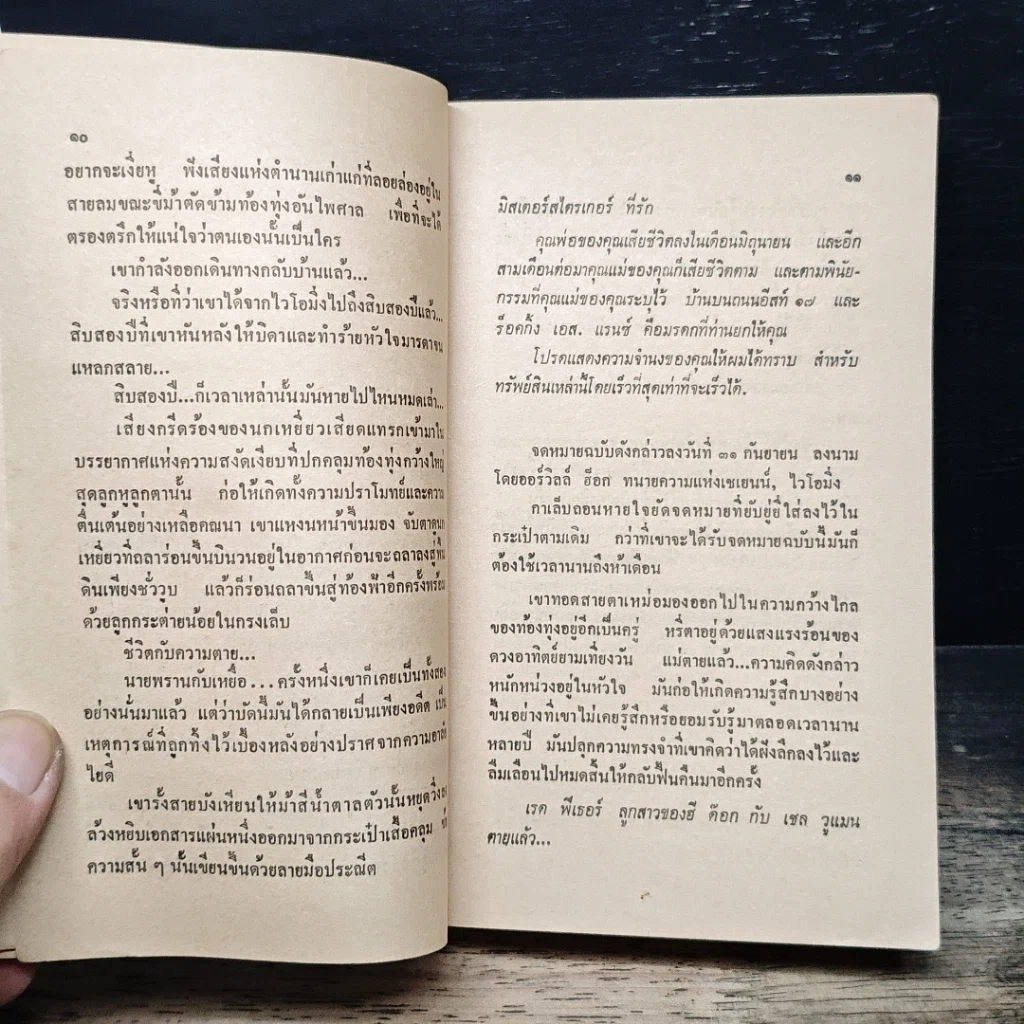 ๑๐
อยากจะเงี่ยหู ฟังเสียงแห่งตำนานเก่าแก่ที่ลอยล่องอยู่ใน
สายลมขณะขี่ม้าตัดข้ามท้องทุ่งอันไพศาล เพื่อที่จะได้
ตรองตรึกให้แน่ใจว่าตนเองนั้นเป็นใคร
เขากำลังออกเดินทางกลับบ้านแล้ว...
จริงหรือที่ว่าเขาได้จากไวโอมิ่งไปถึงสิบสองปีแล้ว...
สิบสองปีที่เขาหันหลังให้บิดาและทำร้ายหัวใจมารดาจน
แหลกสลาย...
สิบสองปี...ก็เวลาเหล่านั้นมันหายไปไหนหมดเล่า...
เสียงกรีดร้องของนกเหยี่ยวเสียดแทรกเข้ามาใน
บรรยากาศแห่งความสงัดเงียบที่ปกคลุมท้องทุ่งกว้างใหญ่
สุดลูกหูลูกตานั้น ก่อให้เกิดทั้งความปราโมทย์และความ
ตื่นเต้นอย่างเหลือคณนา เขาแหงนหน้าขึ้นมอง จับตาดูนก
เหยี่ยวที่ถลาร่อนขึ้นบินวนอยู่ในอากาศก่อนจะถลาลงสู่พื้น
ดินเพียงชั่ววูบ แล้วก็ร่อนถลาขึ้นสู่ท้องฟ้าอีกครั้งพร้อม
ด้วยลูกกระต่ายน้อยในกรงเล็บ
ชีวิตกับความตาย...
นายพรานกับเหยื่อ...ครั้งหนึ่งเขาก็เคยเป็นทั้งสอง
อย่างนั่นมาแล้ว แต่ว่าบัดนี้มันได้กลายเป็นเพียงอดีต เป็น
เหตุการณ์ที่ถูกทิ้งไว้เบื้องหลังอย่างปราศจากความอาลัย
ไยดี
เขารั้งสายบังเหียนให้ม้าสีน้ำตาลตัวนั้นหยุดวิ่ง
ล้วงหยิบเอกสารแผ่นหนึ่งออกมาจากกระเป๋าเสื้อคลุม
ความสั้น ๆ นั้นเขียนขึ้นด้วยลายมือประณีต
๑๑
มิสเตอร์สไตรเกอร์ ที่รัก
คุณพ่อของคุณเสียชีวิตลงในเดือนมิถุนายน และอีก
สามเดือนต่อมาคุณแม่ของคุณก็เสียชีวิตตาม และตามพินัย-
กรรมที่คุณแม่ของคุณระบุไว้ บ้านบนถนนอีสท์ ๑๗ และ
ร็อคกิ้ง เอส. แรนช์ คือมรดกที่ท่านยกให้คุณ
โปรดแสดงความจำนงของคุณให้ผมได้ทราบ สำหรับ
ทรัพย์สินเหล่านี้โดยเร็วที่สุดเท่าที่จะเร็วได้.
จดหมายฉบับดังกล่าวลงวันที่ ๓๑ กันยายน ลงนาม
โดยออร์วิลล์ ฮ็อก ทนายความแห่งเชเยนน์, ไวโอมิ่ง
กาเล็บถอนหายใจยัดจดหมายที่ยับยู่ยี่ใส่ลงไว้ใน
กระเป๋าตามเดิม กว่าที่เขาจะได้รับจดหมายฉบับนี้มันก็
ต้องใช้เวลานานถึงห้าเดือน
เขาทอดสายตาเหม่อมองออกไปในความกว้างไกล
ของท้องทุ่งอยู่อีกเป็นครู่ หรี่ตาอยู่ด้วยแสงแรงร้อนของ
ดวงอาทิตย์ยามเที่ยงวัน แม่ตายแล้ว...ความคิดดังกล่าว
หนักหน่วงอยู่ในหัวใจ มันก่อให้เกิดความรู้สึกบางอย่าง
ขึ้นอย่างที่เขาไม่เคยรู้สึกหรือยอมรับรู้มาตลอดเวลานาน
หลายปี มันปลุกความทรงจำที่เขาคิดว่าได้ฝังลึกลงไว้และ
ลืมเลือนไปหมดสิ้นให้กลับฟื้นคืนมาอีกครั้ง
เรด พีเธอร์ ลูกสาวของฮี ด๊อก กับ เชล วูแมน
ตายแล้ว...